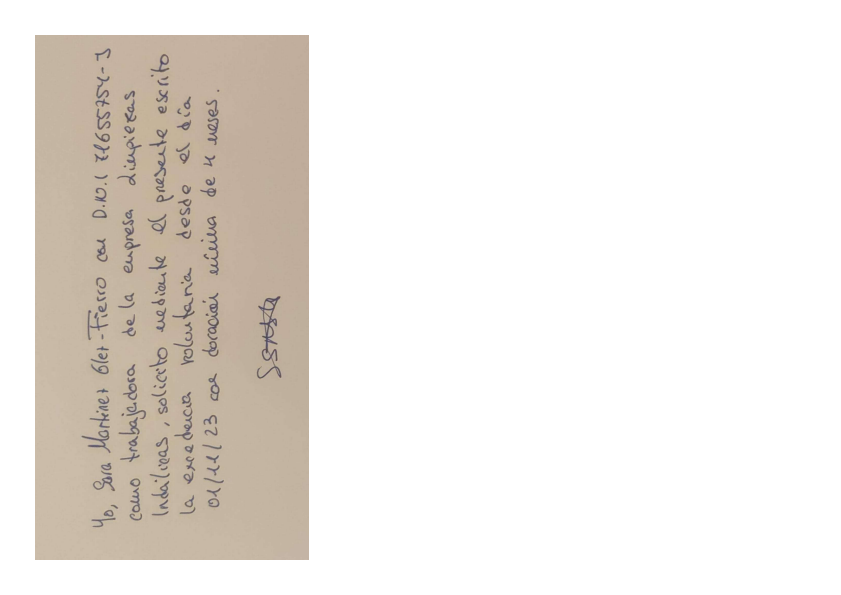 Yo, Sara Martinez Glez-Fierro con D.N.I 71655754-J
como trabajadora de la empresa Limpiezas
Indalizas, solicito mediante el presente escrito
la excedencia voluntaria desde el día
01/11/23 con duración mínima de 4 meses.